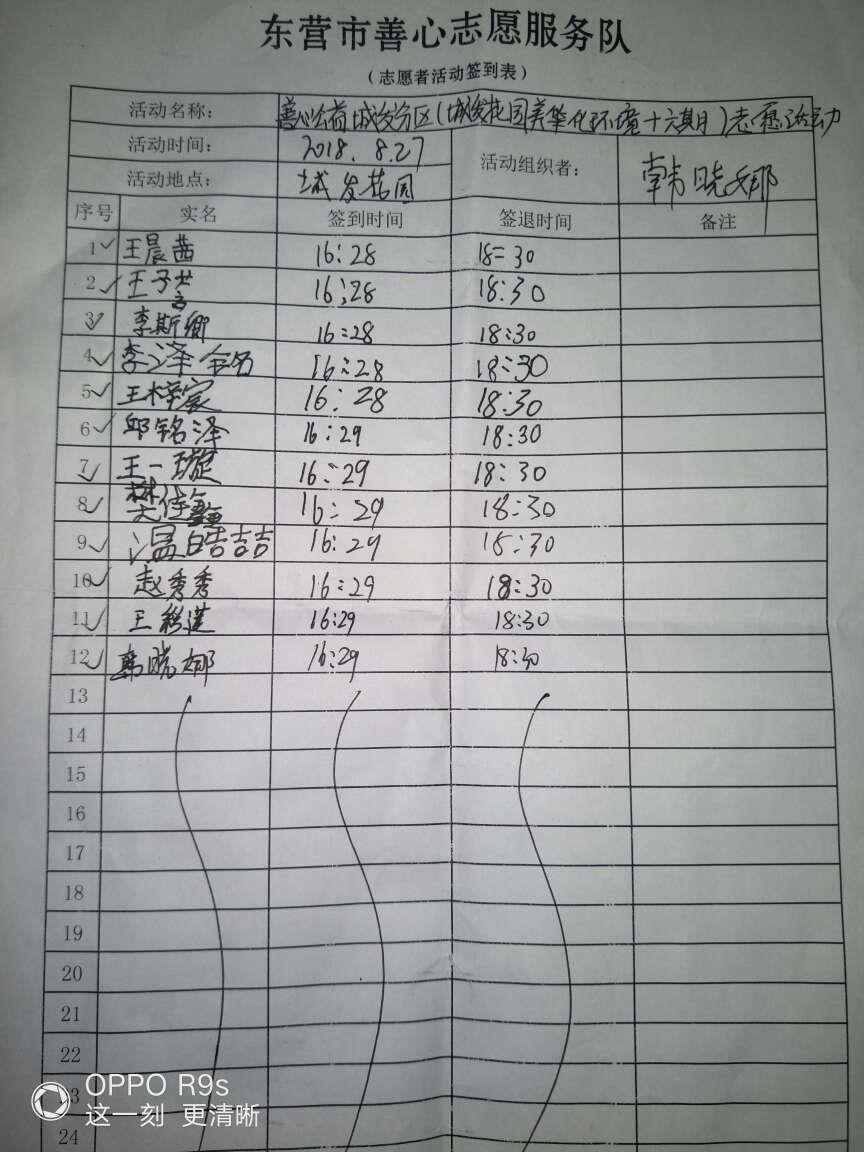 东营市善心志愿服务队
(志愿者活动签到表)
活动名称: 善心公益城发分区(城发花园美华化环境十六期)志愿活动
活动时间: 2018.8.27 活动组织者: 韩晓娜
活动地点: 城发花园
序号 实名 签到时间 签退时间 备注
1 王晨茜 16:28 18:30
2 王子 16:28 18:30
3 李斯卿 16:28 18:30
4 李泽铭 16:28 18:30
5 王梓宸 16:28 18:30
6 邱铭泽 16:29 18:30
7 王一璇 16:29 18:30
8 樊佳 16:29 18:30
9 温皓喆 16:29 18:30
10 赵秀秀 16:29 18:30
11 王彩莲 16:29 18:30
12 韩晓娜 16:29 18:30
13
14
15
16
17
18
19
20
21
22
3
24
OPPO R9s
这一刻 更清晰